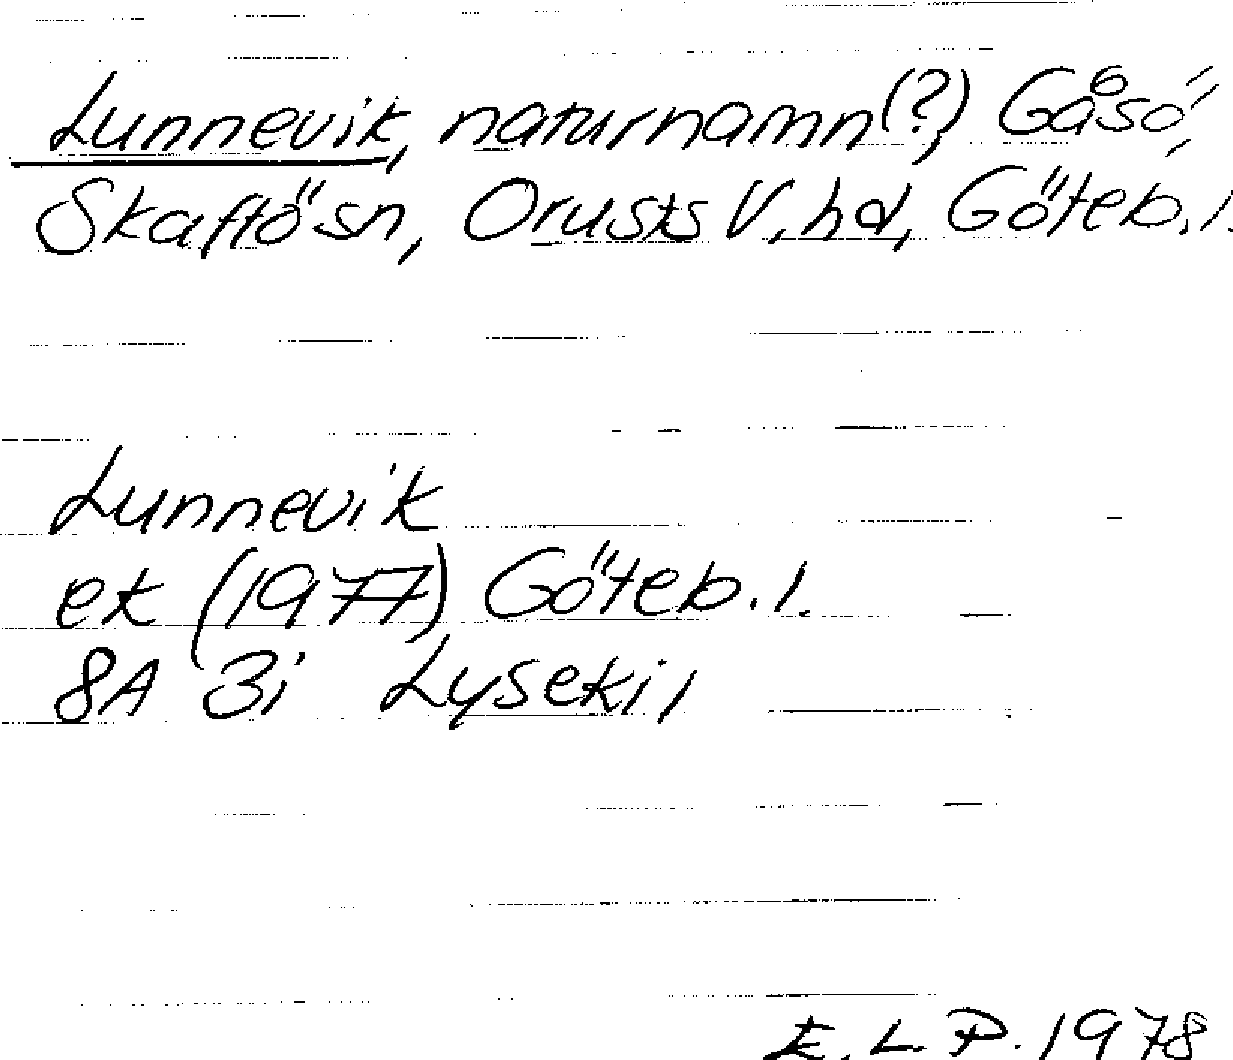 Lunnevik, naturnamn(?) Gåsö,
Skaftö sn, Orusts V. hd, Göteb. l.
Lunnevik
ek (1977) Göteb. l.
8A 3i Lysekil
E. L. P. 1978